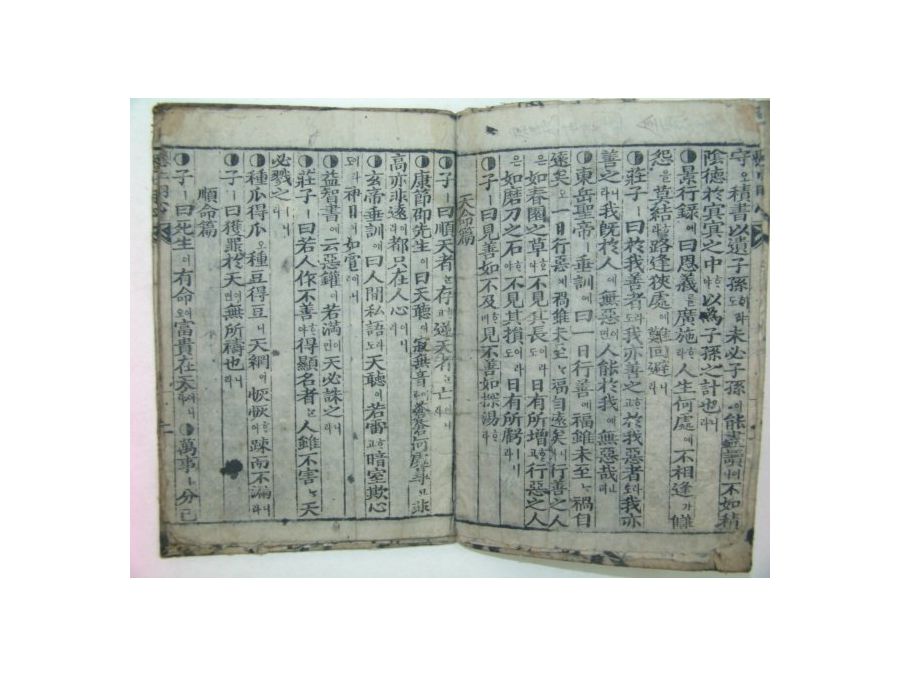 守오積書以遺子孫도이라未必子孫이能盡讀이니不如積
陰德於冥冥之中하야以爲子孫之計也니라
景行錄에曰恩義를廣施하라人生何處에不相逢가讎
怨을莫結하라路逢狹處에難回避니라
莊子ㅣ曰於我善者도我亦善之하고於我惡者도我亦
善之라我旣於人에無惡이면人能於我에無惡哉저
東岳聖帝ㅣ垂訓에曰一日行善에福雖未至나禍自
遠矣오一日行惡에禍雖未至나福自遠矣니行善之人
은如春園之草하야不見其長이라도日有所增하고行惡之人
은如磨刀之石하야不見其損이라도日有所虧니라
子ㅣ曰見善如不及하며見不善如探湯하라
天命篇
子ㅣ曰順天者는存하고逆天者는亡이니라
康節邵先生이曰天聽이寂無音하니蒼蒼何處尋고非
高亦非遠이라都只在人心이니라
玄帝垂訓에曰人間私語라도天聽이若雷하고暗室欺心
이라도神目이如電이니라
益智書에云惡鑵이若滿이면天必誅之니라
莊子ㅣ曰若人作不善하야得顯名者는人雖不害나天
必戮之니라
種瓜得瓜오種豆得豆니天網이恢恢하야疎而不漏니라
子ㅣ曰獲罪於天이면無所禱也니라
順命篇
子ㅣ曰死生이有命이오富貴在天이니라 萬事ㅣ分已